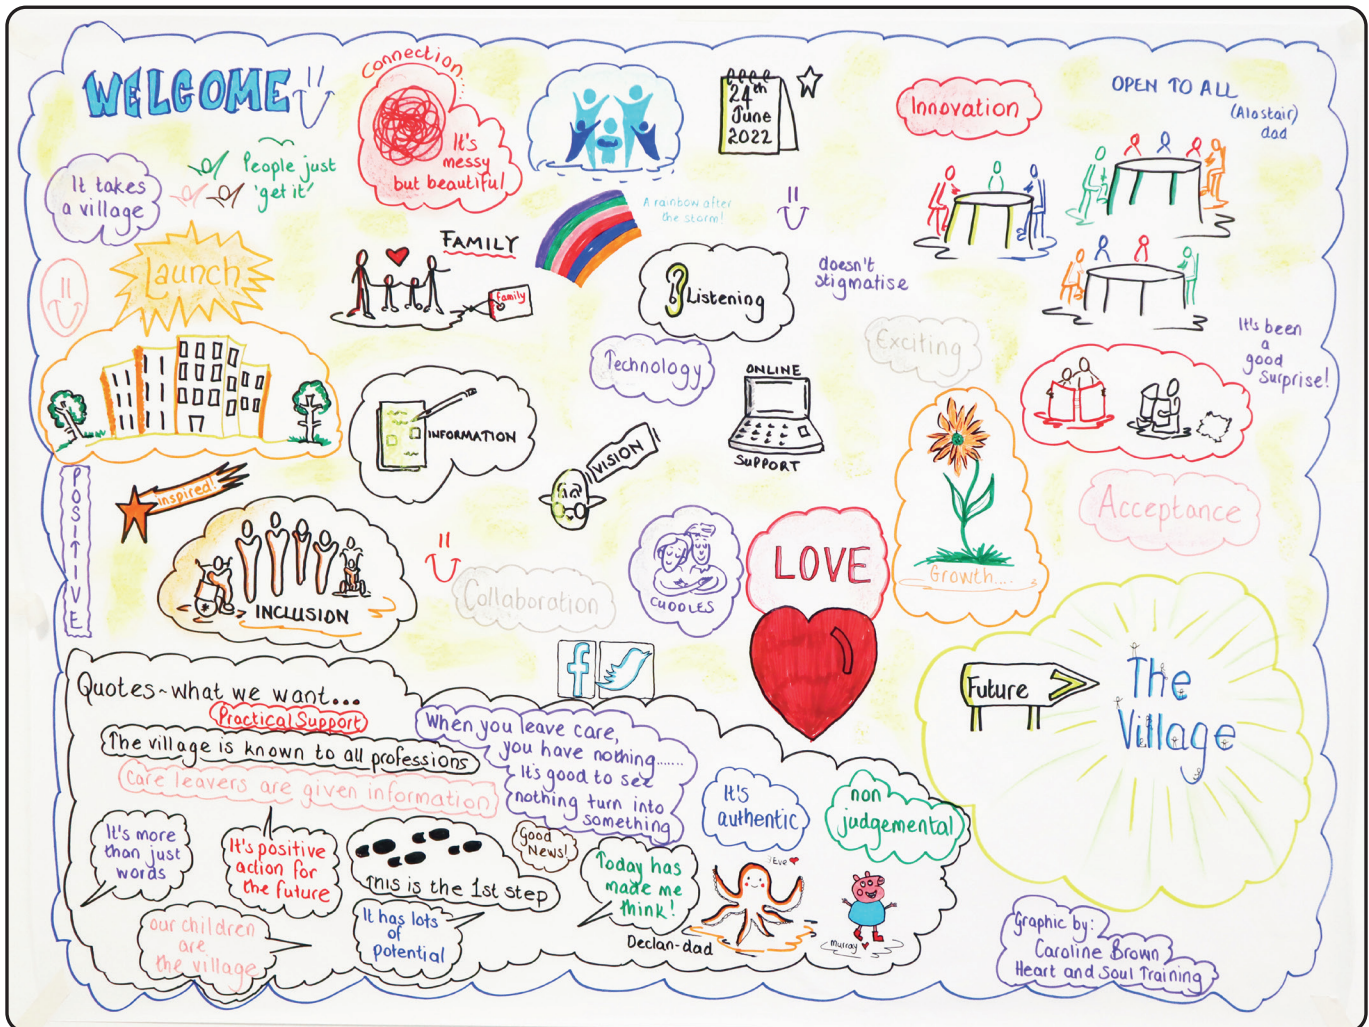 WELCOME
Connection.
It's
messy
but beautiful
24th
June
2022
Innovation
OPEN TO ALL
(Alastair)
dad
It takes
a village
People just
'get it'
A rainbow after
the storm!
FAMILY
family
Launch
Listening
doesn't
stigmatise
Technology
Exciting
It's been
a
good
surprise!
ONLINE
SUPPORT
INFORMATION
VISION
POSITIVE
inspired!
Acceptance
INCLUSION
Collaboration
CUDDLES
LOVE
Growth....
Future
The
Village
Quotes~what we want...
Practical Support
The village is known to all professions
Care leavers are given information
When you leave care,
you have nothing......
It's good to see
nothing turn into
something
It's
authentic
non
judgemental
It's more
than just
words
It's positive
action for
the future
This is the 1st step
Good
News!
Today has
made me
think!
Declan-dad
Eve
Murray
our children
are
the village
It has lots
of
potential
Graphic by:
Caroline Brown
Heart and Soul Training